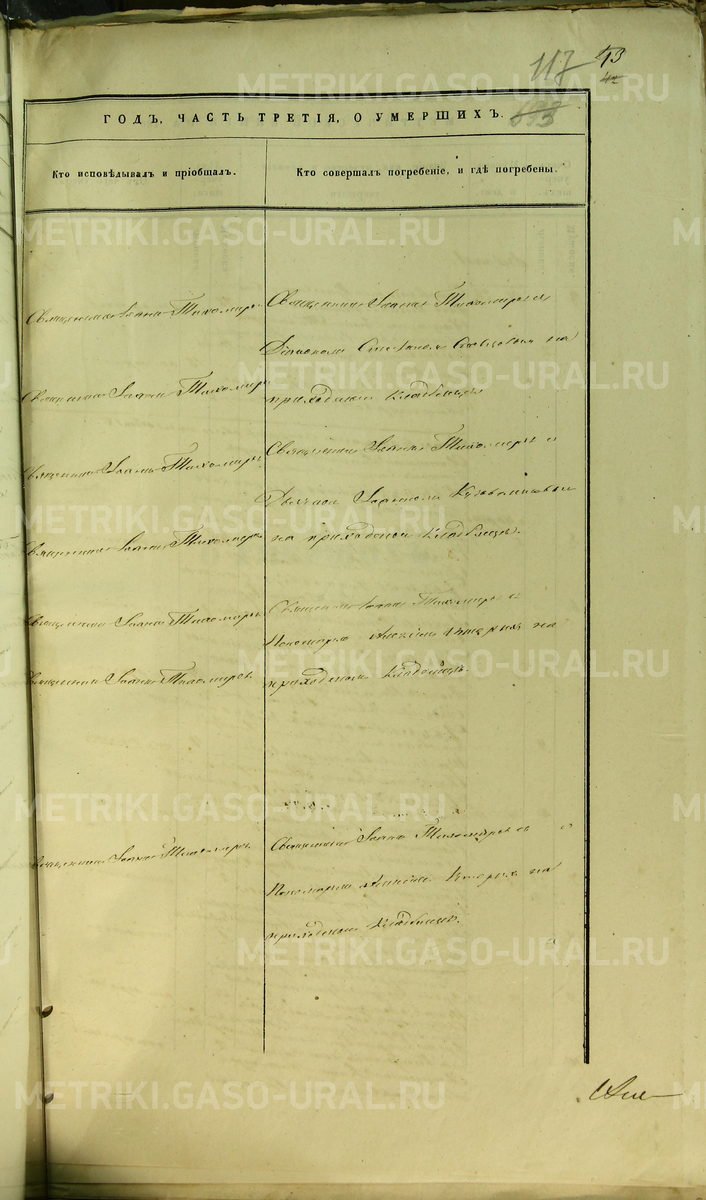 117 43
ГОДЪ, ЧАСТЬ ТРЕТІЯ, О УМЕРШИХЪ.
Кто исповѣдывалъ и пріобщалъ.
Кто совершалъ погребеніе, и гдѣ погребены.
Священникъ Іоаннъ Тихомировъ
Священникъ Іоаннъ Тихомировъ
Священникъ Іоаннъ Тихомировъ
Священникъ Іоаннъ Тихомировъ
Священникъ Іоаннъ Тихомировъ
Священникъ Іоаннъ Тихомировъ
Священникъ Іоаннъ Тихомировъ
Священникъ Іоаннъ Тихомировъ и
Діакономъ Степаномъ на
приходскомъ кладбищѣ
Священникъ Іоаннъ Тихомировъ и
Іоанномъ
на приходскомъ кладбищѣ.
Священникъ Іоаннъ Тихомировъ и
Пономаремъ на
приходскомъ кладбищѣ.
Священникъ Іоаннъ Тихомировъ и
Пономаремъ на
приходскомъ кладбищѣ.
METRIKI.GASO-URAL.RU
METRIKI.GASO-URAL.RU
METRIKI.GASO-URAL.RU
METRIKI.GASO-URAL.RU
METRIKI.GASO-URAL.RU
METRIKI.GASO-URAL.RU
METRIKI.GASO-URAL.RU
METRIKI.GASO-URAL.RU